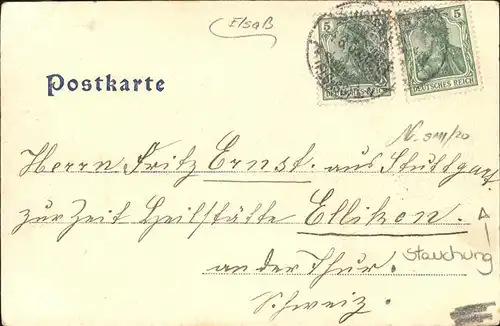 Elsaß
5 5
DEUTSCHES REICH DEUTSCHES REICH
Postkarte
Herrn Fritz Ernst. aus Stuttgart
zur Zeit Heilstätte Ellikon.
an der Thur.
Stauchung
Schweiz.